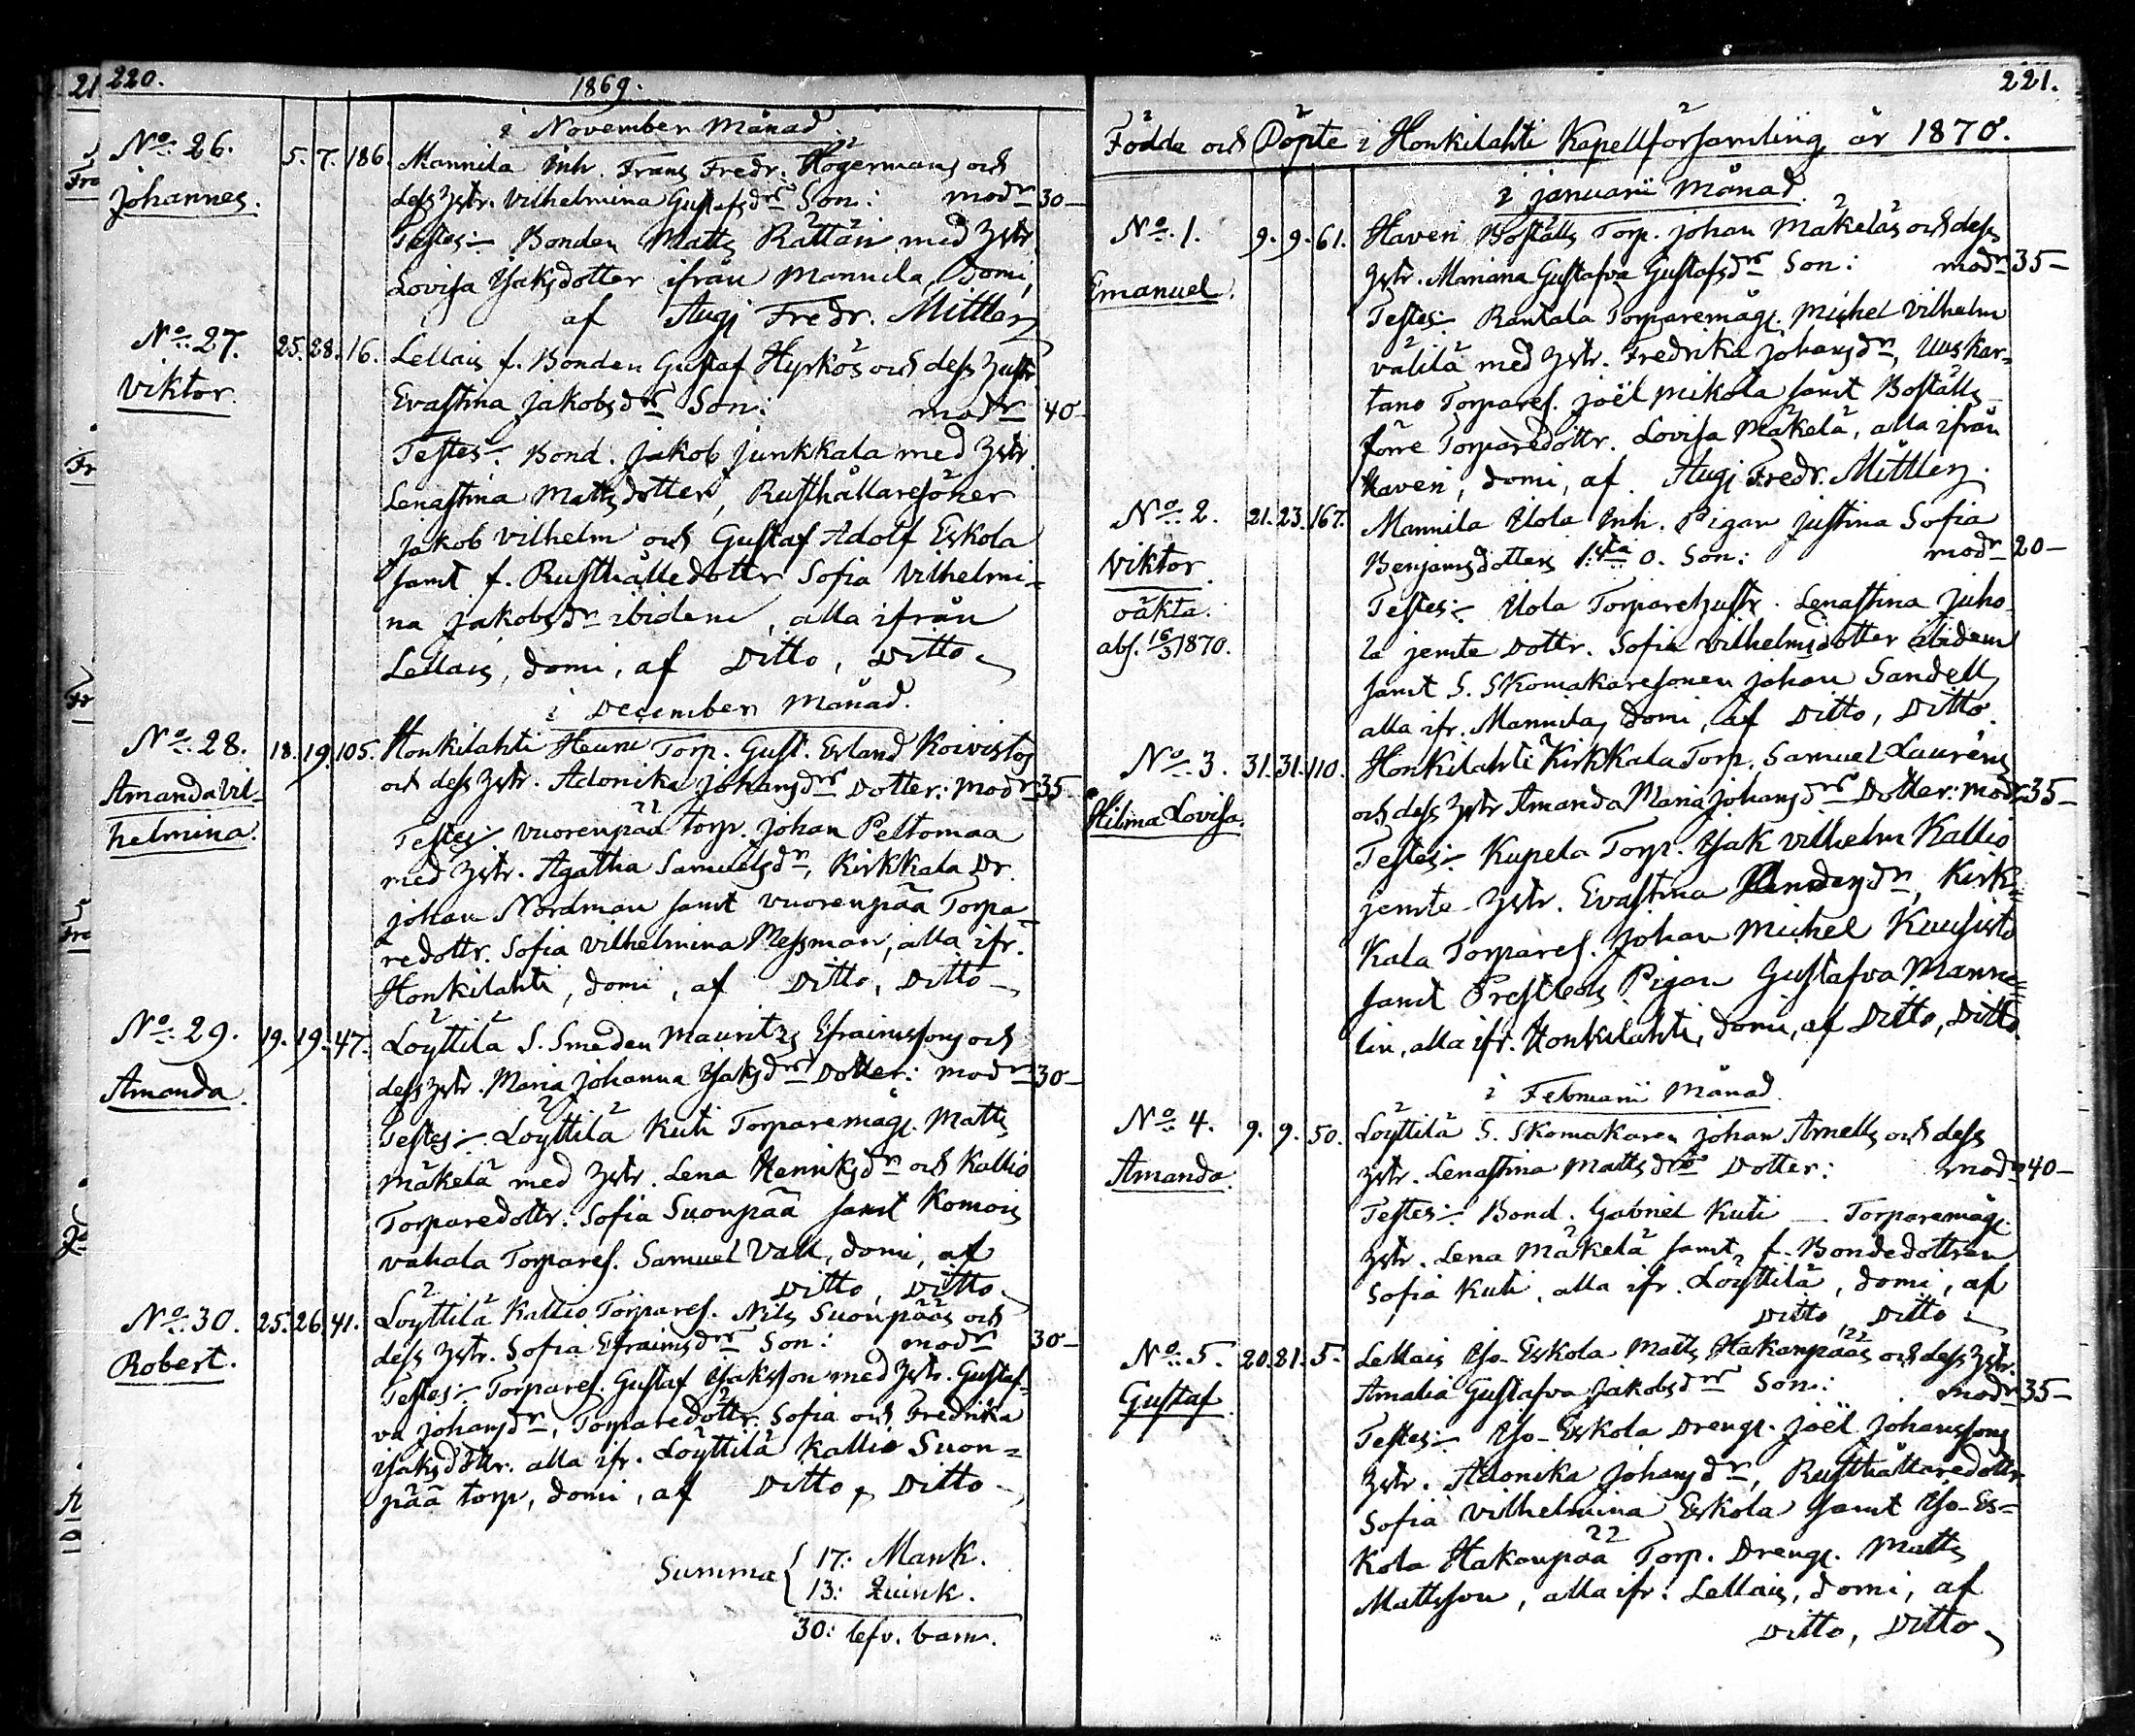 21
220.
1869.
i November Månad.
No: 26. 5. 7. 186. Mannila Inh. Frans Fredr. Högermans och
Johannes. dess hstr. Vilhelmina Gustafsdrs Son: modr 30–
Testes:– Bonden Matts Rättäri med hstr.
Lovisa Isaksdotter ifrån Mannila, domi,
af Augj Fredr. Mittler
No: 27. 25. 28. 16. Lellais f. Bonden Gustaf Hyrkös och dess hustr.
Viktor. Evastina Jakobsdrs Son: modr 40–
Testes:– Bond. Jakob Junkkala med hstr.
Lenastina Mattsdotter, Rusthållaresöner
Jakob Vilhelm och Gustaf Adolf Eskola
samt f. Rusthålledottr Sofia Vilhelmi=
na Jakobsdr ibidem, alla ifrån
Lellais, domi, af Ditto, Ditto
i December Månad.
No: 28. 18. 19. 105. Honkilahti Heuru Torp. Gust. Erland Koivistos
Amanda Vil= och dess hstr. Adonika Johansdrs Dotter: Modr 35–
helmina. Testes:– Vuorenpää torp. Johan Peltomaa
med hstr. Agatha Samuelsdr, Kirkkala Dr.
Johan Nordman samt Vuorenpää Torpa=
redottr. Sofia Vilhelmina Messman, alla ifr.
Honkilahti, domi, af Ditto, Ditto–
No: 29. 19. 19. 47. Löyttilä S. Smeden Mauritz Efraimssons och
Amanda. dess hstr. Maria Johanna Isaksdrs Dotter: modr 30–
Testes:– Löyttilä Kuti Torparemåg. Matts
Mäkelä med hstr. Lena Henriksdr och Kallio
Torparedottr. Sofia Suonpää samt Komois
Vahala Torpares. Samuel Vall, domi, af
Ditto, Ditto
No: 30. 25. 26. 41. Löyttilä Kallio Torpares. Nils Suonpääs och
Robert. dess hstr. Sofia Efraimsdrs Son: modr 30–
Testes:– Torpares. Gustaf Isaksson med hstr. Gustaf=
va Johansdr, Torparedöttr. Sofia och Fredrika
Isaksdöttr. alla ifr. Löyttilä Kallio Suon=
pää torp, domi, af Ditto, Ditto–
Summa { 17: Mank.
13: Quink.
30: lefv. barn.
221.
Födda och Döpte i Honkilahti Kapellförsamling år 1870.
i Januarii Månad.
No: 1. 9. 9. 61. Haveri Boställs Torp. Johan Mäkeläs och dess
Emanuel. hstr. Mariana Gustafva Gustafsdrs Son: modr 35–
Testes:– Rantala Torparemåg. Michel Vilhelm
Välilä med hstr. Fredrika Johansdr, Uuskar=
tano Torpares. Joël Mikola samt Boställs
förre Torparedottr. Lovisa Mäkelä, alla ifrån
Haveri, domi, af Augj Fredr. Mittler.
No: 2. 21. 23. 167. Mannila Uola Inh. Pigan Justina Sofia
Viktor. Benjamsdotters 1:sta o. Son: modr 20–
oäkta. Testes:– Uola Torparehustr. Lenastina Juho
abs. 16/3 1870. la jemte dottr. Sofia Vilhelmsdotter ibidem
samt S. Skomakaresonen Johan Sandell,
alla ifr. Mannila, domi, af Ditto, Ditto.
No: 3. 31. 31. 110. Honkilahti Kirkkala Torp. Samuel Lauréns
Hilma Lovisa. och dess hstr Amanda Maria Johansdrs Dotter: modr 35–
Testes:– Kupela Torp. Isak Vilhelm Kallio
jemte hstr. Evastina dr, Kirk=
kala Torpares. Johan Michel Kuusisto
samt Prestbols Pigan Gustafva Manne=
lin, alla ifr. Honkilahti, domi, af Ditto, Ditto.
i Februarii Månad.
No: 4. 9. 9. 50. Löyttilä S. Skomakaren Johan Arnells och dess
Amanda. hstr. Lenastina Mattsdrs Dotter: modr 40–
Testes:– Bond. Gabriel Kuti — Torparemåg.
hstr. Lena Mäkelä samt f. Bondedottren
Sofia Kuti, alla ifr. Löyttilä, domi, af
Ditto, Ditto
No: 5. 20. 21. 5. Lellais Iso-Eskola Matts Hakanpääs och dess hstr.
Gustaf. Amalia Gustafva Jakobsdrs Son: modr 35–
Testes:– Iso-Eskola Dreng. Joël Johanssons
hstr. Adonika Johansdr, Rusthållaredottr.
Sofia Vilhelmina Eskola samt Iso-Es=
kola Hakanpää Torp. Dreng. Matts
Mattsson, alla ifr. Lellais, domi, af
Ditto, Ditto